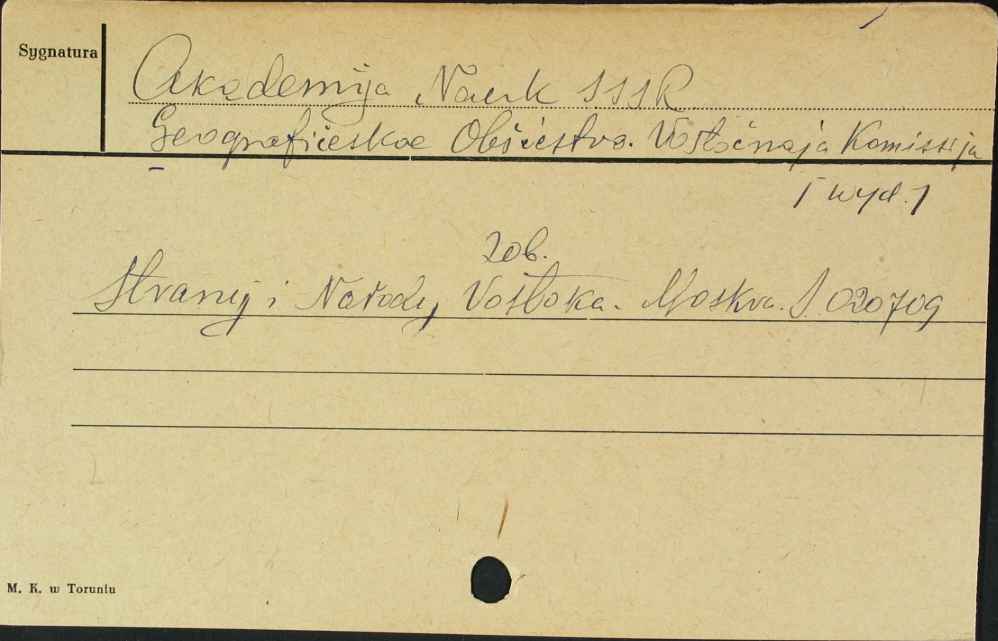 Sygnatura
Akademija Nauk SSSR
Geografičeskoe Obščestvo. Vostočnaja Komissija
/ wyd. /
zob.
Strany i Narody Vostoka. Moskva. S. 020709
M. K. w Toruniu